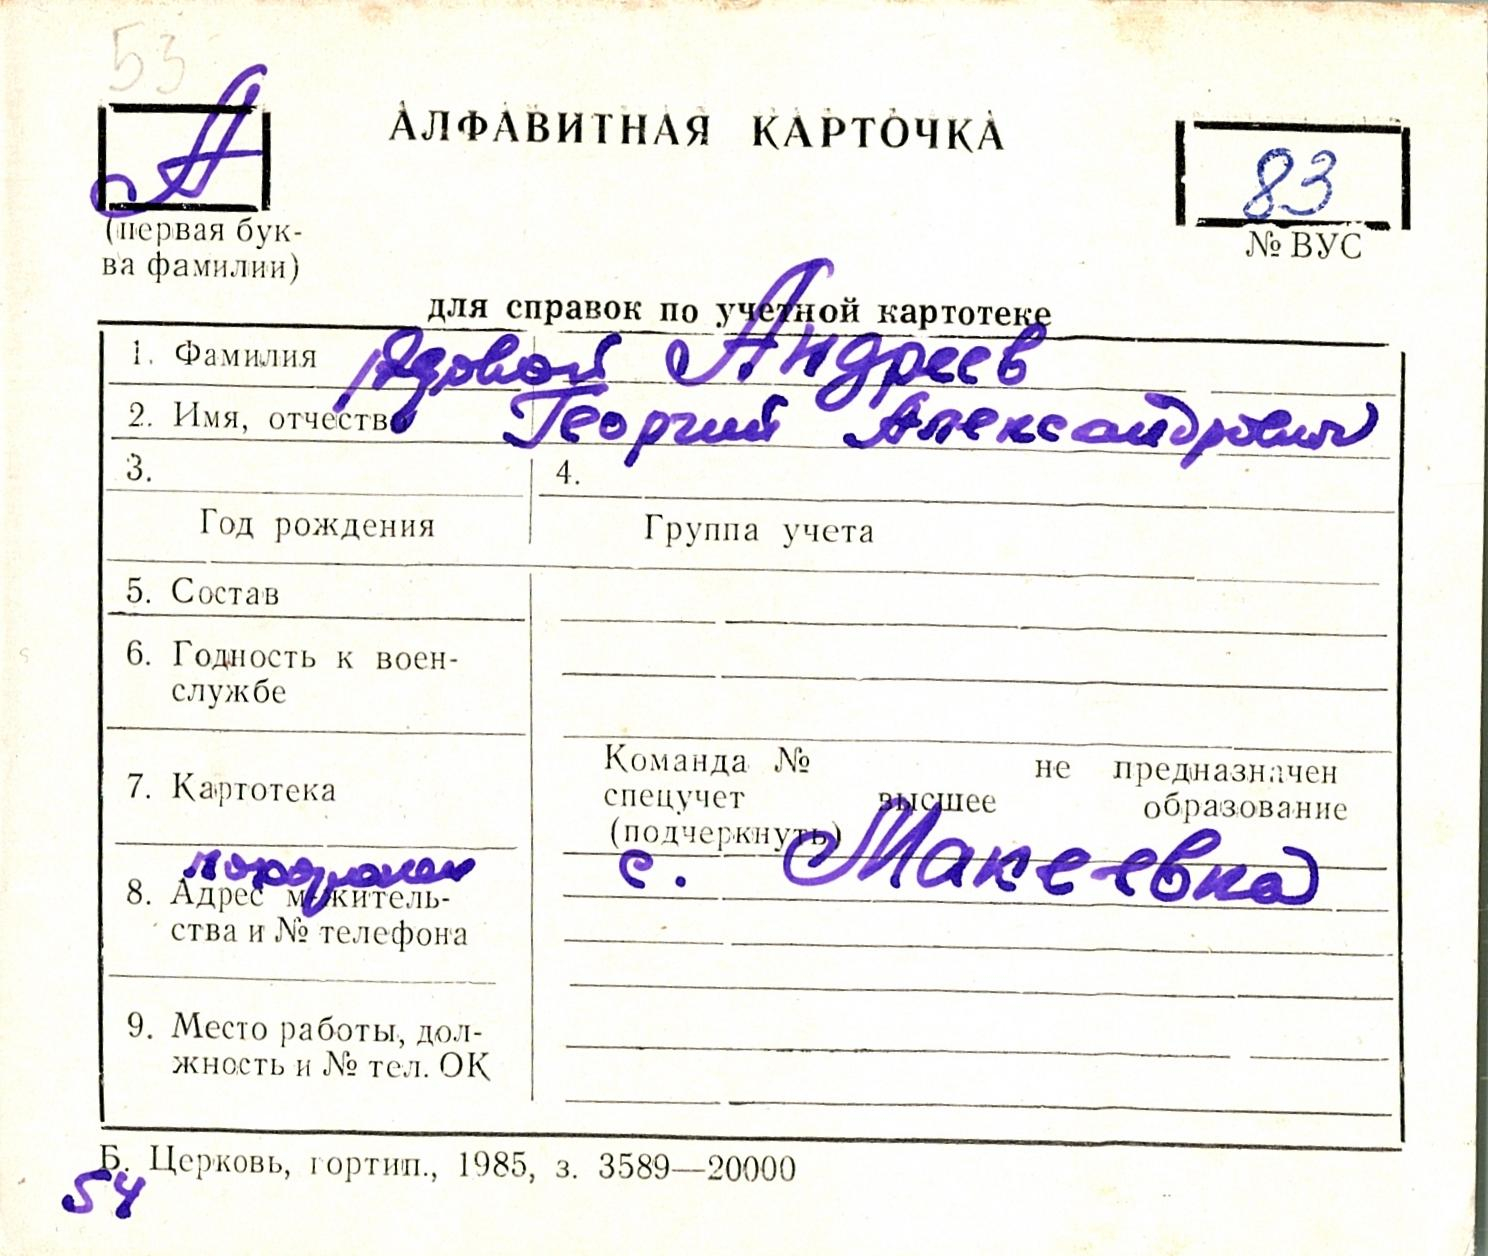 53
А
АЛФАВИТНАЯ КАРТОЧКА
83
(первая бук-
ва фамилии)
№ ВУС
для справок по учетной картотеке
1. Фамилия рядовой Андреев
2. Имя, отчество Георгий Александрович
3. 4.
Год рождения Группа учета
5. Состав
6. Годность к воен-
службе
Команда № не предназначен
7. Картотека спецучет высшее образование
(подчеркнуть)
похоронен с. Макеевка
8. Адрес м/житель-
ства и № телефона
9. Место работы, дол-
жность и № тел. ОК
Б. Церковь, гортип., 1985, з. 3589—20000
54